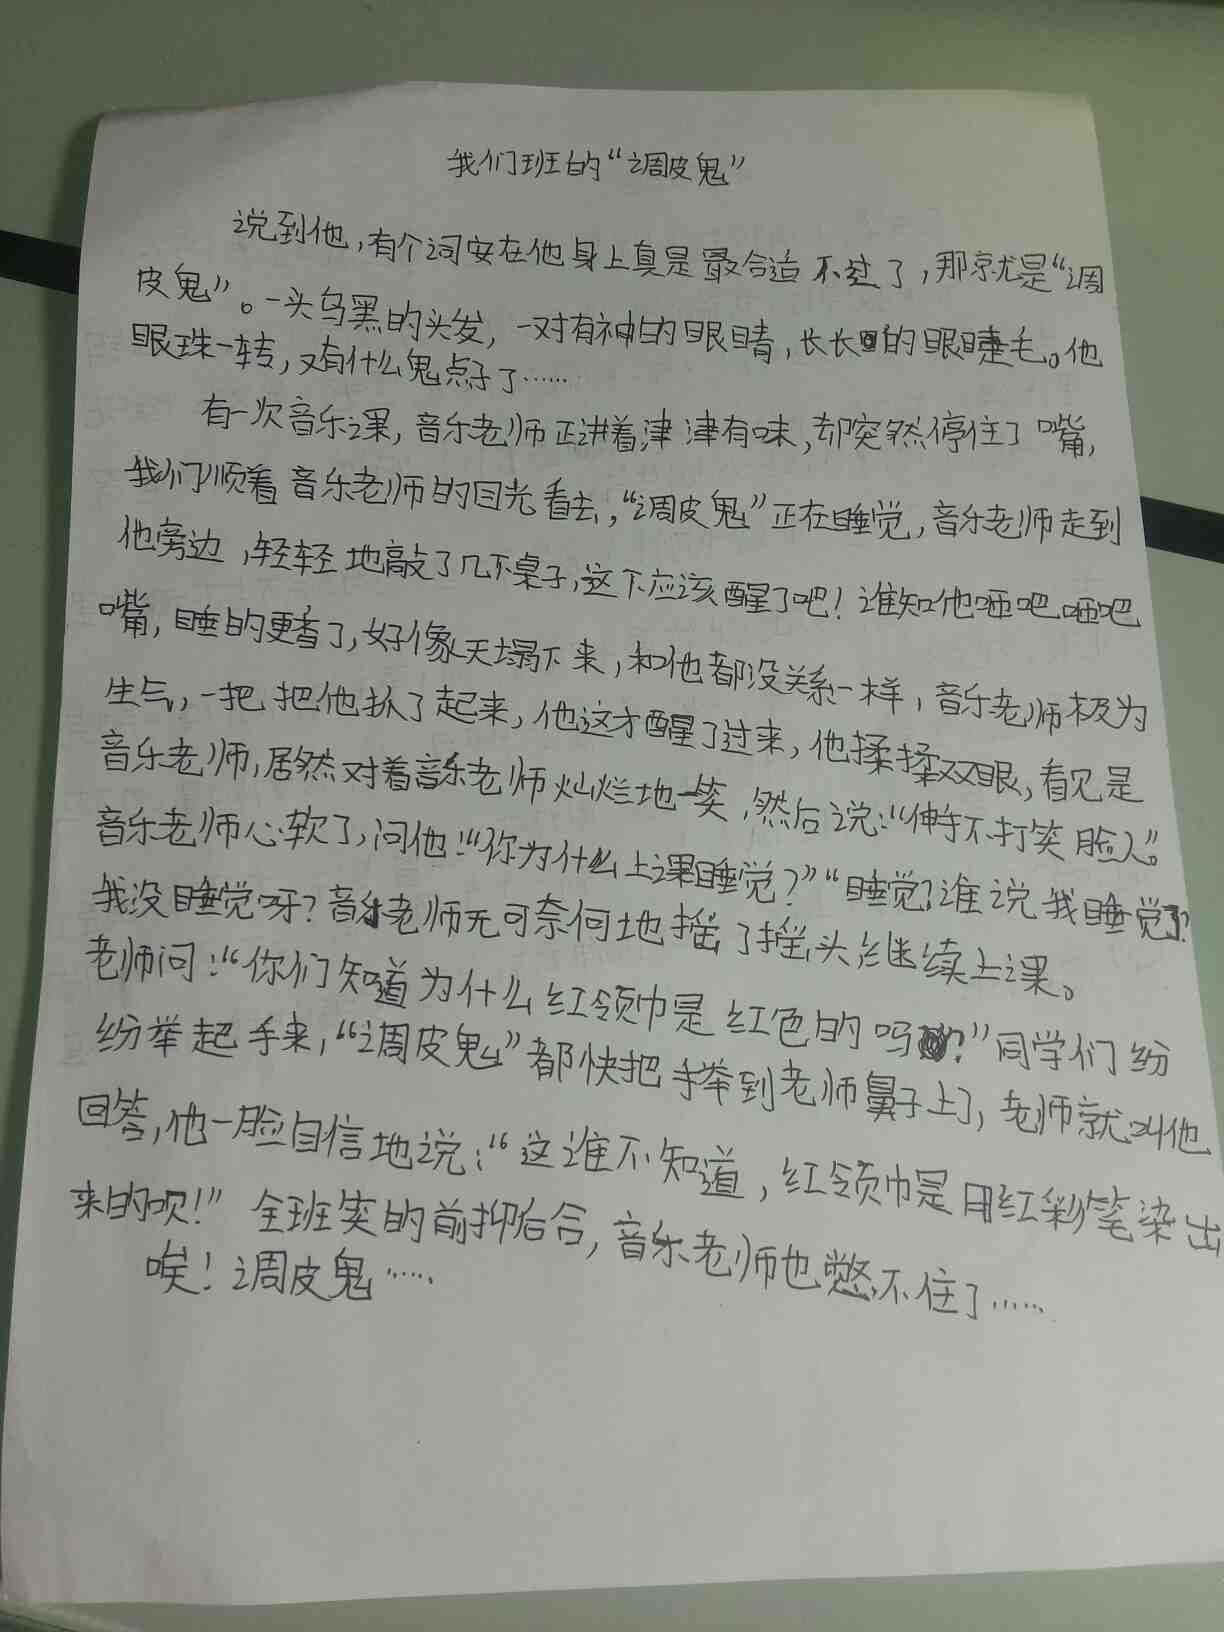 我们班的“调皮鬼”
说到他,有个词安在他身上真是最合适不过了,那就是“调
皮鬼”。一头乌黑的头发,一对有神的眼睛,长长的眼睫毛。他
眼珠一转,又有什么鬼点子了……
有一次音乐课,音乐老师正讲着津津有味,却突然停住了嘴,
我们顺着音乐老师的目光看去,“调皮鬼”正在睡觉,音乐老师走到
他旁边,轻轻地敲了几下桌子,这下应该醒了吧!谁知他咂吧咂吧
嘴,睡的更香了,好像天塌下来,和他都没关系一样,音乐老师极为
生气,一把把他扒了起来,他这才醒了过来,他揉揉双眼,看见是
音乐老师,居然对着音乐老师灿烂地一笑,然后说:“伸手不打笑脸人”。
音乐老师心软了,问他:“你为什么上课睡觉?”“睡觉?谁说我睡觉了?
我没睡觉呀?音乐老师无可奈何地摇了摇头继续上课。
老师问:“你们知道为什么红领巾是红色的吗?”同学们纷
纷举起手来,“调皮鬼”都快把手举到老师鼻子上了,老师就叫他
回答,他一脸自信地说:“这谁不知道,红领巾是用红彩笔染出
来的呗!”全班笑的前抑后合,音乐老师也憋不住了……
唉!调皮鬼……